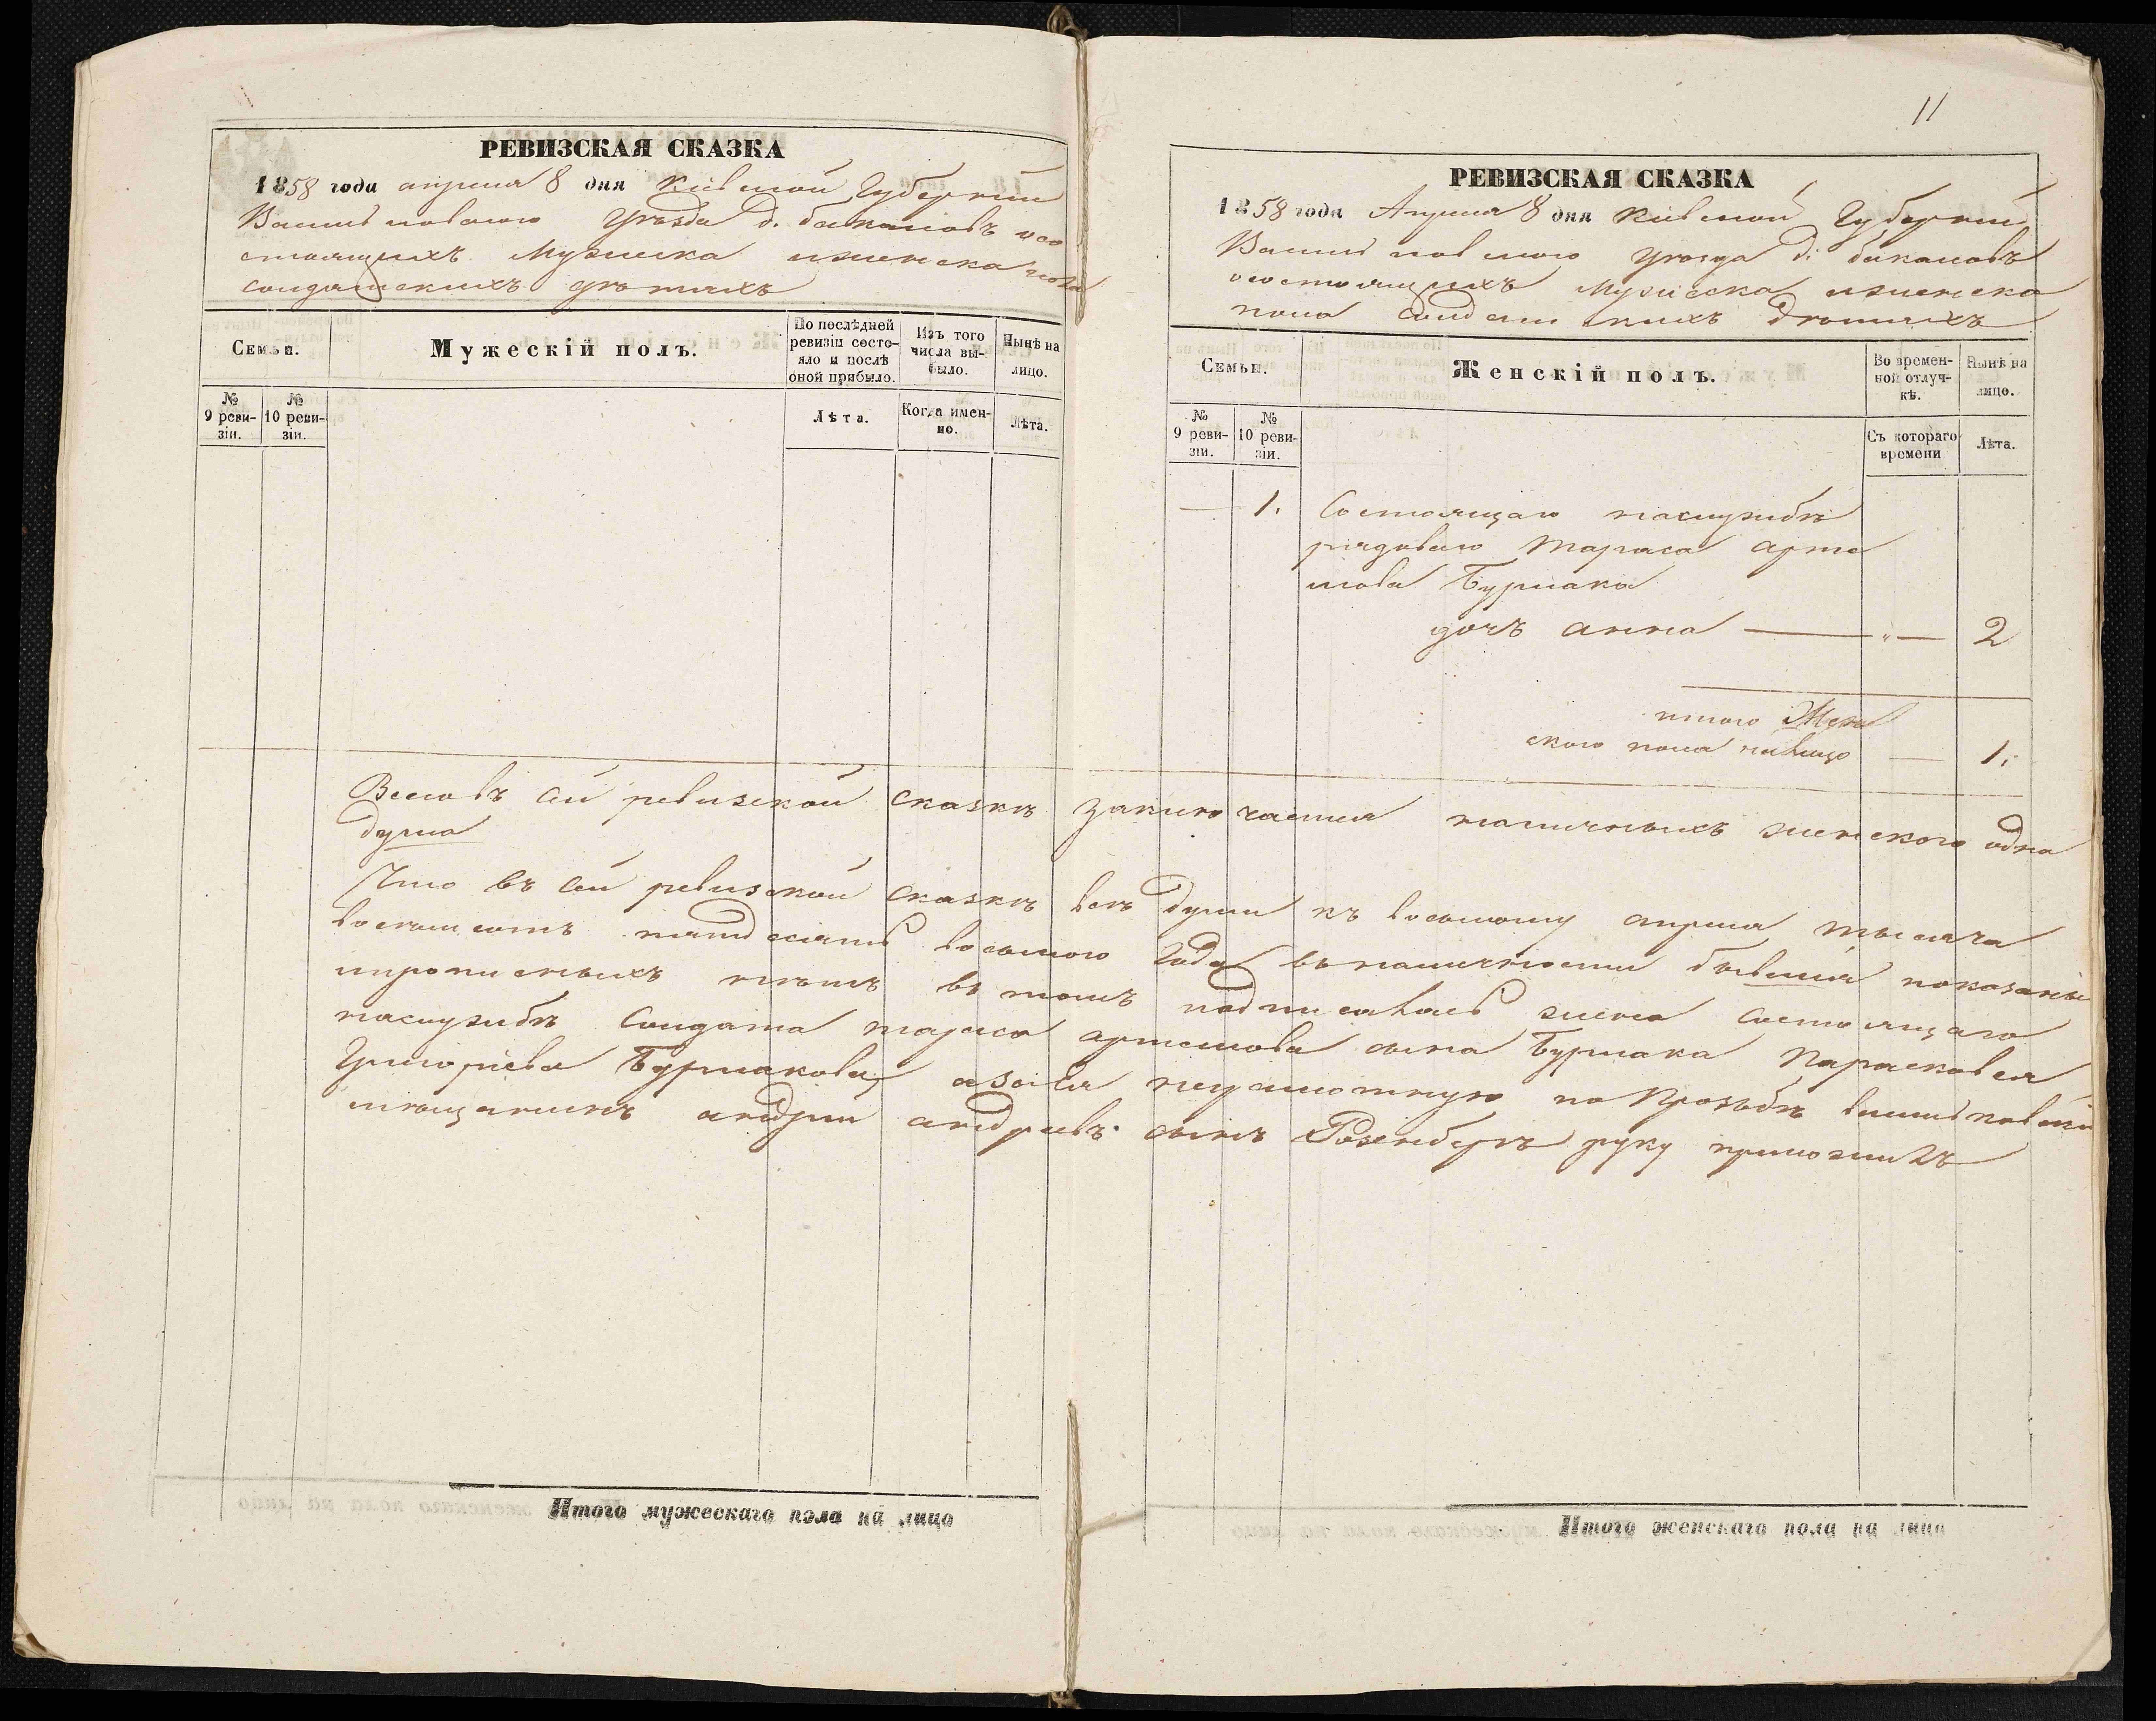 РЕВИЗСКАЯ СКАЗКА
1858 года апреля 8 дня Кіевской Губерніи
Васильковского Уѣзда д. о со
стоящихъ Мужеска и женска пола
солдатскихъ дѣтяхъ
Семьи.
Мужескій полъ.
По послѣдней ревизіи состо-
яло и послѣ
оной прибыло.
Изъ того
числа вы-
было.
Нынѣ на
лицо.
№
9 реви-
зіи.
№
10 реви-
зіи.
Лѣта.
Когда имен-
но.
Лѣта.
11
РЕВИЗСКАЯ СКАЗКА
1858 года Апреля 8 дня Кіевской Губерніи
Васильковского Уѣзда д.
о состоящихъ Мужеска и женска
пола солдатскихъ дѣтяхъ
Семьи.
Женскій полъ.
Во времен-
ной отлуч-
кѣ.
Нынѣ на
лицо.
№
9 реви-
зіи.
№
10 реви-
зіи.
Съ котораго
времени
Лѣта.
— 1. Состоящаго наслужбѣ
рядоваго Тараса Арте
мова Бурлака
дочь анна — „ — 2
итого Жен
ского пола налицо — 1.
Всего въ сей ревизской сказкѣ заключается наличныхъ женского одна
душа
Что въ сей ревизской сказкѣ всѣ души къ восьмому апреля тысяча
восемьсотъ пятдесятъ восьмого года вналичности бывшія показаны
и прописныхъ нѣтъ въ томъ подписалась жена состоящаго
наслужбѣ Солдата тараса артемова сына Бурлака Параскевея
Григоріева Бурлакова, а за нея неграмотную по Прозьбѣ васильковскій
мещанинъ андрей андреевъ сынъ Розенбергъ руку приложилъ
Итого мужескаго пола на лицо
Итого женскаго пола на лицо